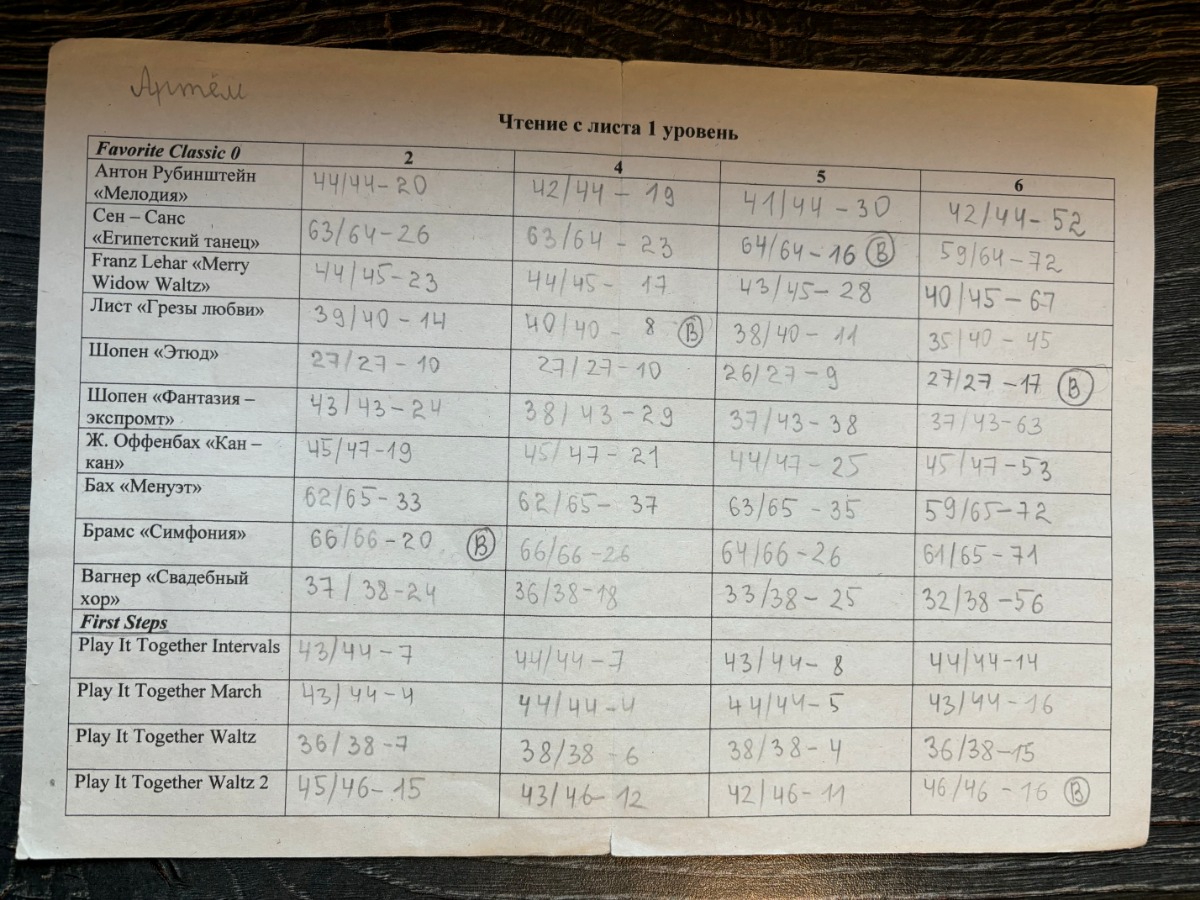 Артём
Чтение с листа 1 уровень
Favorite Classic 0 2 4 5 6
Антон Рубинштейн «Мелодия» 44/44-20 42/44 - 19 41/44 - 30 42/44-52
Сен – Санс «Египетский танец» 63/64-26 63/64 - 23 64/64-16 В 59/64-72
Franz Lehar «Merry Widow Waltz» 44/45-23 44/45- 17 43/45- 28 40/45-67
Лист «Грезы любви» 39/40 - 14 40/40 - 8 В 38/40 - 11 35/40 - 45
Шопен «Этюд» 27/27 - 10 27/27-10 26/27-9 27/27-17 В
Шопен «Фантазия – экспромт» 43/43-24 38/43-29 37/43-38 37/43-63
Ж. Оффенбах «Кан – кан» 45/47-19 45/47-21 44/47-25 45/47-53
Бах «Менуэт» 62/65-33 62/65- 37 63/65 -35 59/65-72
Брамс «Симфония» 66/66-20 В 66/66-26 64/66-26 61/65-71
Вагнер «Свадебный хор» 37/38-24 36/38-18 33/38- 25 32/38-56
First Steps
Play It Together Intervals 43/44-7 44/44-7 43/44- 8 44/44-14
Play It Together March 43/44-4 44/44-4 44/44-5 43/44-16
Play It Together Waltz 36/38-7 38/38-6 38/38-4 36/38-15
Play It Together Waltz 2 45/46-15 43/46-12 42/46-11 46/46-16 В